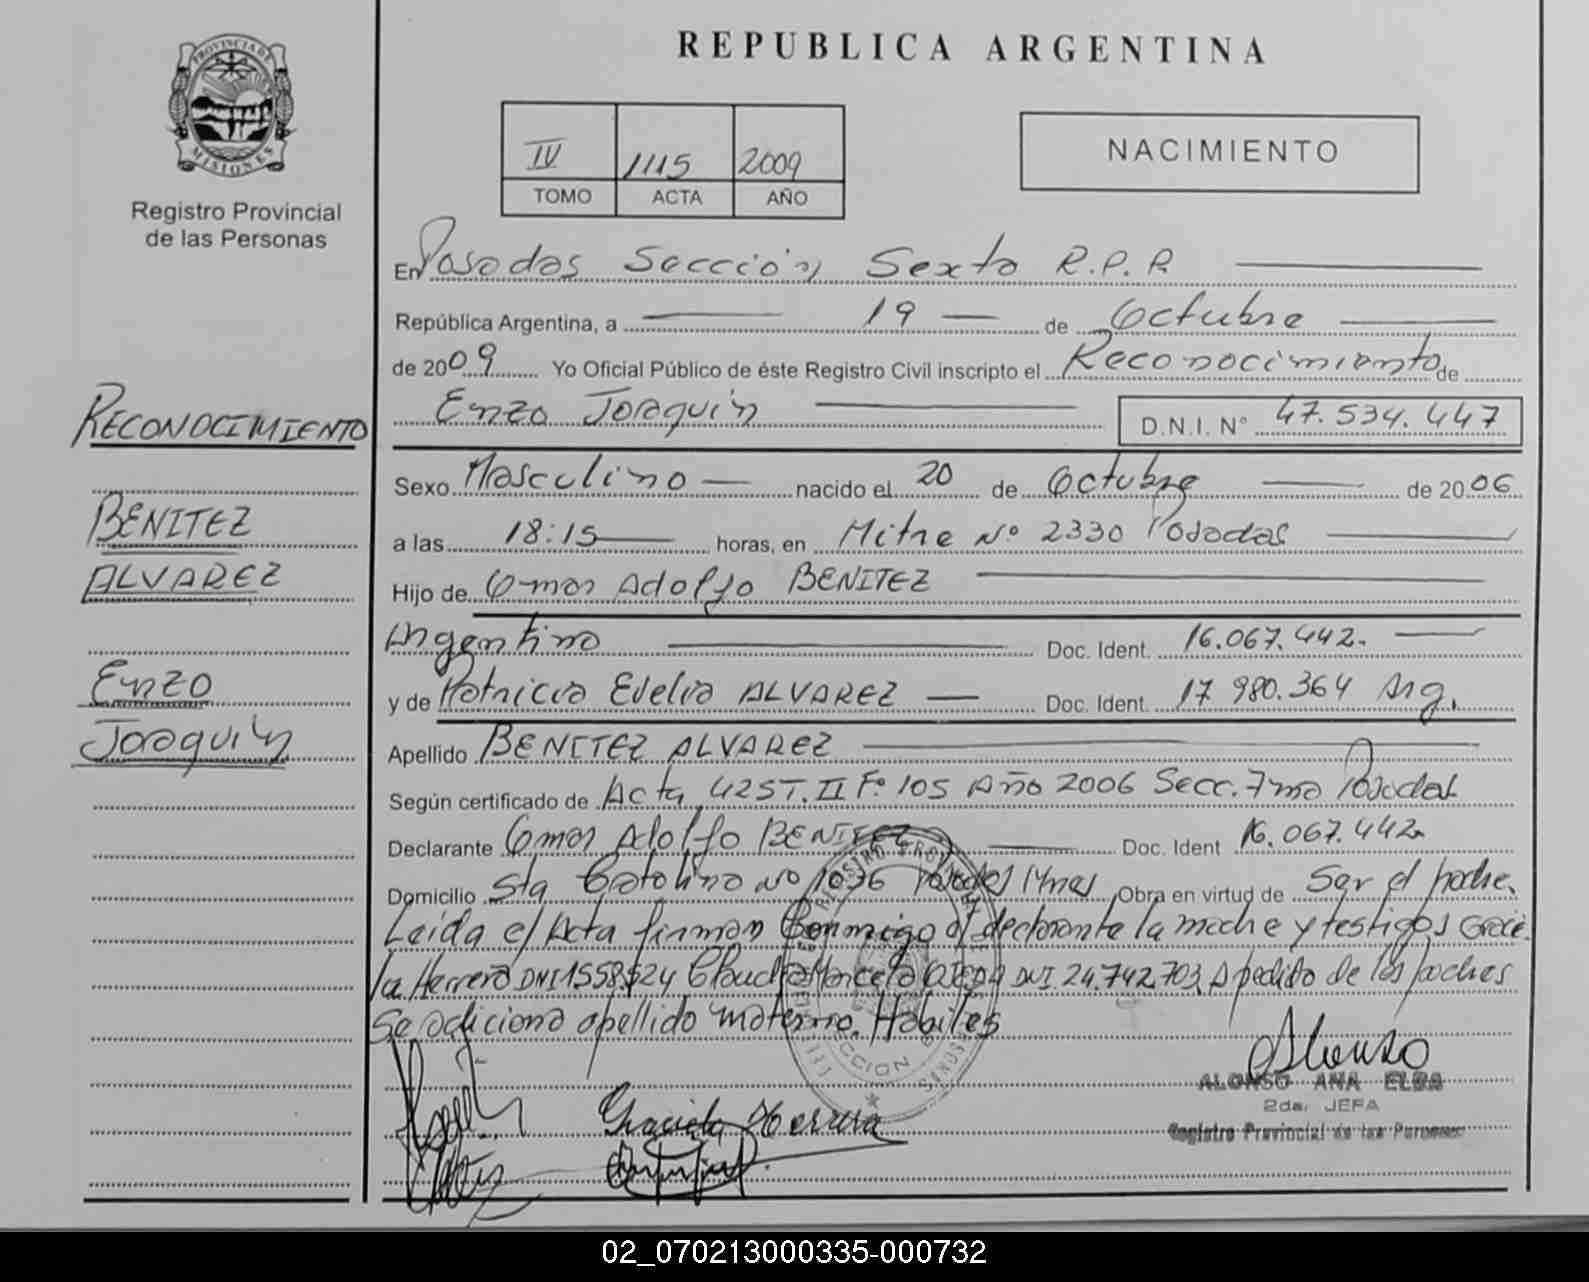 REPUBLICA ARGENTINA
PROVINCIA DE
MISIONES
Registro Provincial
de las Personas
IV 1115 2009
TOMO ACTA AÑO
NACIMIENTO
En Posadas Sección Sexta R.P.P.
República Argentina, a 19 de Octubre
de 2009 Yo Oficial Público de éste Registro Civil inscripto el Reconocimiento de
Enzo Joaquín D.N.I. N° 47.534.447
RECONOCIMIENTO
Sexo Masculino nacido el 20 de Octubre de 2006
a las 18:15 horas, en Mitre N° 2330 Posadas
Hijo de Omar Adolfo BENITEZ
Argentino Doc. Ident. 16.067.442.
y de Patricia Evelia ALVAREZ Doc. Ident. 17 980.364 Arg.
Apellido BENITEZ ALVAREZ
Según certificado de Acta 425 T. II F° 105 Año 2006 Secc. 7ma Posadas
Declarante Omar Adolfo BENITEZ Doc. Ident 16.067.442
Domicilio Sta Catalina N° 1036 Posadas Mnes Obra en virtud de Ser el padre.
Leída el Acta firman Conmigo el declarante la madre y testigos Gracie
la Herrera DNI Claudia Marcela DNI 24.742.703. A pedido de los padres
Se adiciona apellido materno. Hábiles
BENITEZ
ALVAREZ
Enzo
Joaquín
Graciela Herrera
Alonso
ALONSO ANA ELBA
2da. JEFA
Registro Provincial de las Personas
SECCION
02_070213000335-000732